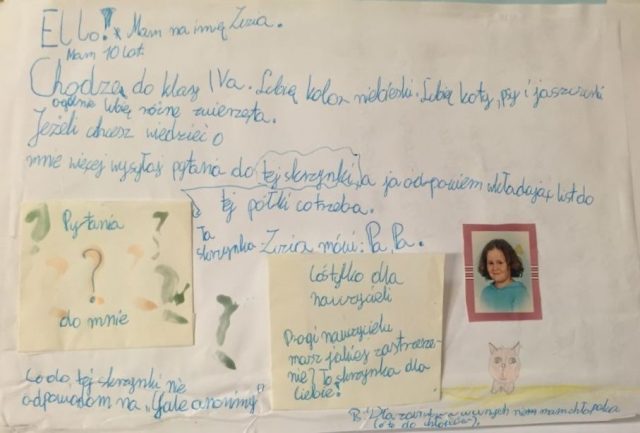 Ello! Mam na imię Zizia.
Mam 10 lat.
Chodzę do klasy IVa. Lubię kolor niebieski. Lubię koty, psy i jaszczurki
ogólnie lubię różne zwierzęta.
Jeżeli chcesz wiedzieć o
mnie więcej wysyłaj pytania do tej skrzynki, a ja odpowiem wkładając list do
tej półki co trzeba.
Ta
skrzynka Zizia mówi: Pa Pa.
Pytania
?
do mnie
Coś tylko dla
nauczycieli
Drogi nauczycielu
masz jakieś zastrzeże-
nie? Ta skrzynka dla
Ciebie!
Co do tej skrzynki nie
odpowiadam na
mam chłopaka
(o to do chłopców).